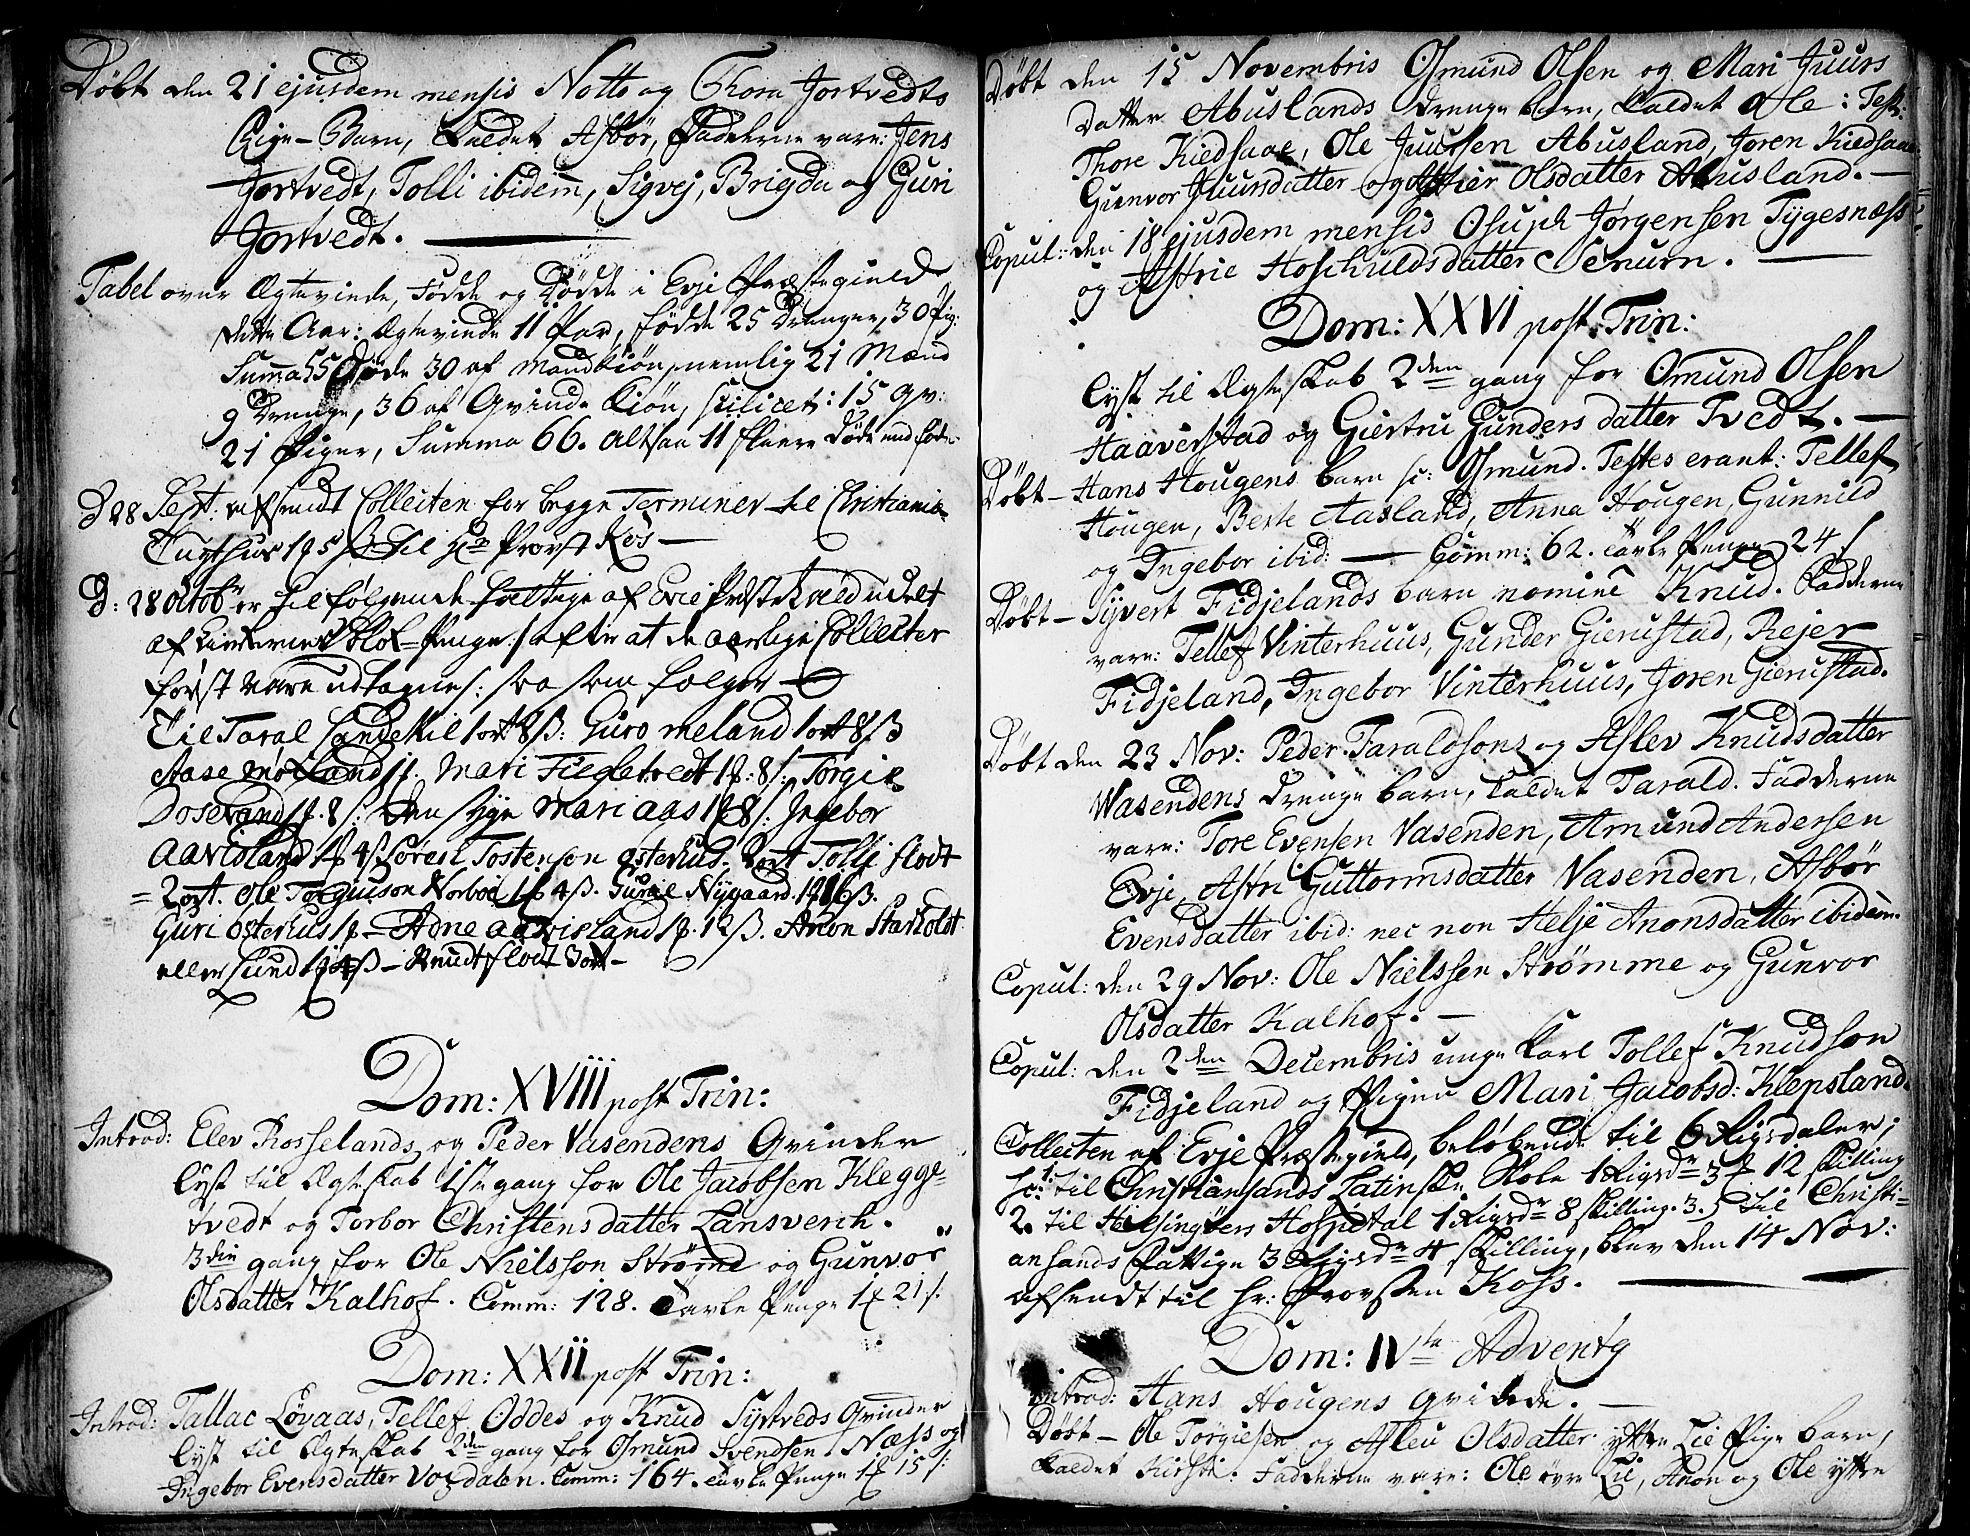 Døbt den 21 ejusdem mensis Notto og Thora Jortvedts
Pige-Barn, kaldet Asbør, Fadderne vare: Jens
Jortvedt, Tolli ibidem, Sigvej, Brigda og Guri
Jortvedt. —
Tabel over Ægteviede, Fødde og Dødde i Evje Præstegield
dette Aar: Ægteviede 11 Par, fødde 25 Drenger, 30 Pig:
Summa 55 Døde 30 af Mandkiøn, nemlig 21 Mænd
9 Drenge, 36 af Qvinde Kiøn, scilicet: 15 qv:
21 Piger, Summa 66. altsaa 11 fleere Døde end fødde.
D 28 Sept: afsendt Collecten for begge Terminer til Christiania
Tugthus til Hr Provst Kos —
D: 28 Octobr er til følgende fattige af Evje Præstekald udelt
af Kirkernes Blok-Penge /: efter at de aarlige Collecter
først vare udtagne :/ saa som følger —
Til Taral Sandekil 1 ort 8 ß: Guro meland 1 ort 8 ß
Aase mølland Mari Fiegletvedt Torgie
Doseland Den syge Mari aas Ingebor
Aavidland Tostenson osterhus. Tollji flodt
= 2 ort. Ole Torgiuson Norboe 4 ß. Nygaard.
Guri osterhus Adne aavisland 12 ß. Anon Starholdt
eller Lund 4 ß — Knudt flodt 3 ort —
Dom: XVIII post Trin:
Introd: Elev Rosselands og Peder Vasendens Qvinder
lyst til Ægteskab 1ste gang for Ole Jacobsen Klegge-
tvedt og Torbor Christensdatter Lansverch.
3die gang for Ole Nielsson Strømme og Gunvor
Olsdatter Kalhof. Comm: 128. Tavle Penge 21 ß:
Dom: XXII post Trin:
Introd: Tallac Løvaas, Tellef Oddes og Knud Systveds Qvinder
lyst til Ægteskab 2den gang for Osmund Svendsen Næss og
Ingebor Evensdatter Vosdalen. Comm: 164. Tavle Penge 15 ß:
Døbt den 15 Novembris Osmund Olsen og Mari Juurs
Datter Abuslands drenge barn, kaldet Ole: Test:
Thore Kiedsaae, Ole Juursen Abusland, Joren Kiedsaae
Gunvor Juursdatter og Olsdatter Abusland. —
Copul: den 18 ejusdem mensis Osuph Jørgensen Tygesnæss
og Astrie Hoschuldsdatter Senum. —
Dom: XXVI post Trin:
lyst til Ægteskab 2den gang for Omund Olsen
Haaverstad og Giertru Gundersdatter Tvedt. —
Døbt — Hans Hougens barn sc: Osmund. Testes erant: Tellef
Hougen, Berte Aasland, Anna Hougen, Gunnild
og Ingebor ibid: — Comm: 62. Tavle Penge 24 ß
Døbt — Syvert Fidjelands barn nomine Knud. Fadderne
vare: Tellef Vinterhuus, Gunder Gierustad, Rejer
Fidjeland, Ingebor Vinterhuus, Joren Gierustad.
Døbt den 23 Nov: Peder Taraldsons og Aslev Knudsdatter
Wasendens Drenge barn, kaldet Tarald. Fadderne
vare: Tore Evensen Vasenden, Amund Andersen
Evje, Astri Guttormsdatter Vasenden, Asbør
Evensdatter ibid: nec non Helje Anonsdatter ibidem.
Copul: den 29 Nov: Ole Nielssen Strømme og Gunvor
Olsdatter Kalhof. —
Copul: den 2den Decembris unge Karl Tollef Knudson
Fidjeland og Pigen Mari Jacobsd: Klepsland.
Collecten af Evje Præstegield, beløbende til 6 Rigsdaler;
sc: 1. til Christiansands Latinske Skole 1 Rigsdr 3 12 skilling
2. til Helsingøers Hospital 1 Rigsdr 8 skilling. 3. til Christi-
ansands Fattige 3 Rigsdr 4 skilling, blev den 14 Nov:
afsendt til Hr: Provsten Koss. —
Dom: IVta Adventq
Introd: Hans Hougens qvinde. —
Døbt — Ole Torgiesen og Asleu Olsdatter yttre Lie Pige barn,
kaldet Kirsti. Fadderne vare: Ole øvre Lie, Anon og Ole yttre